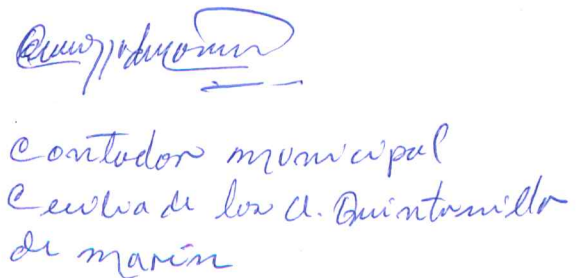 Contador municipal
Cecilia de los A. Quintanilla
de Marín